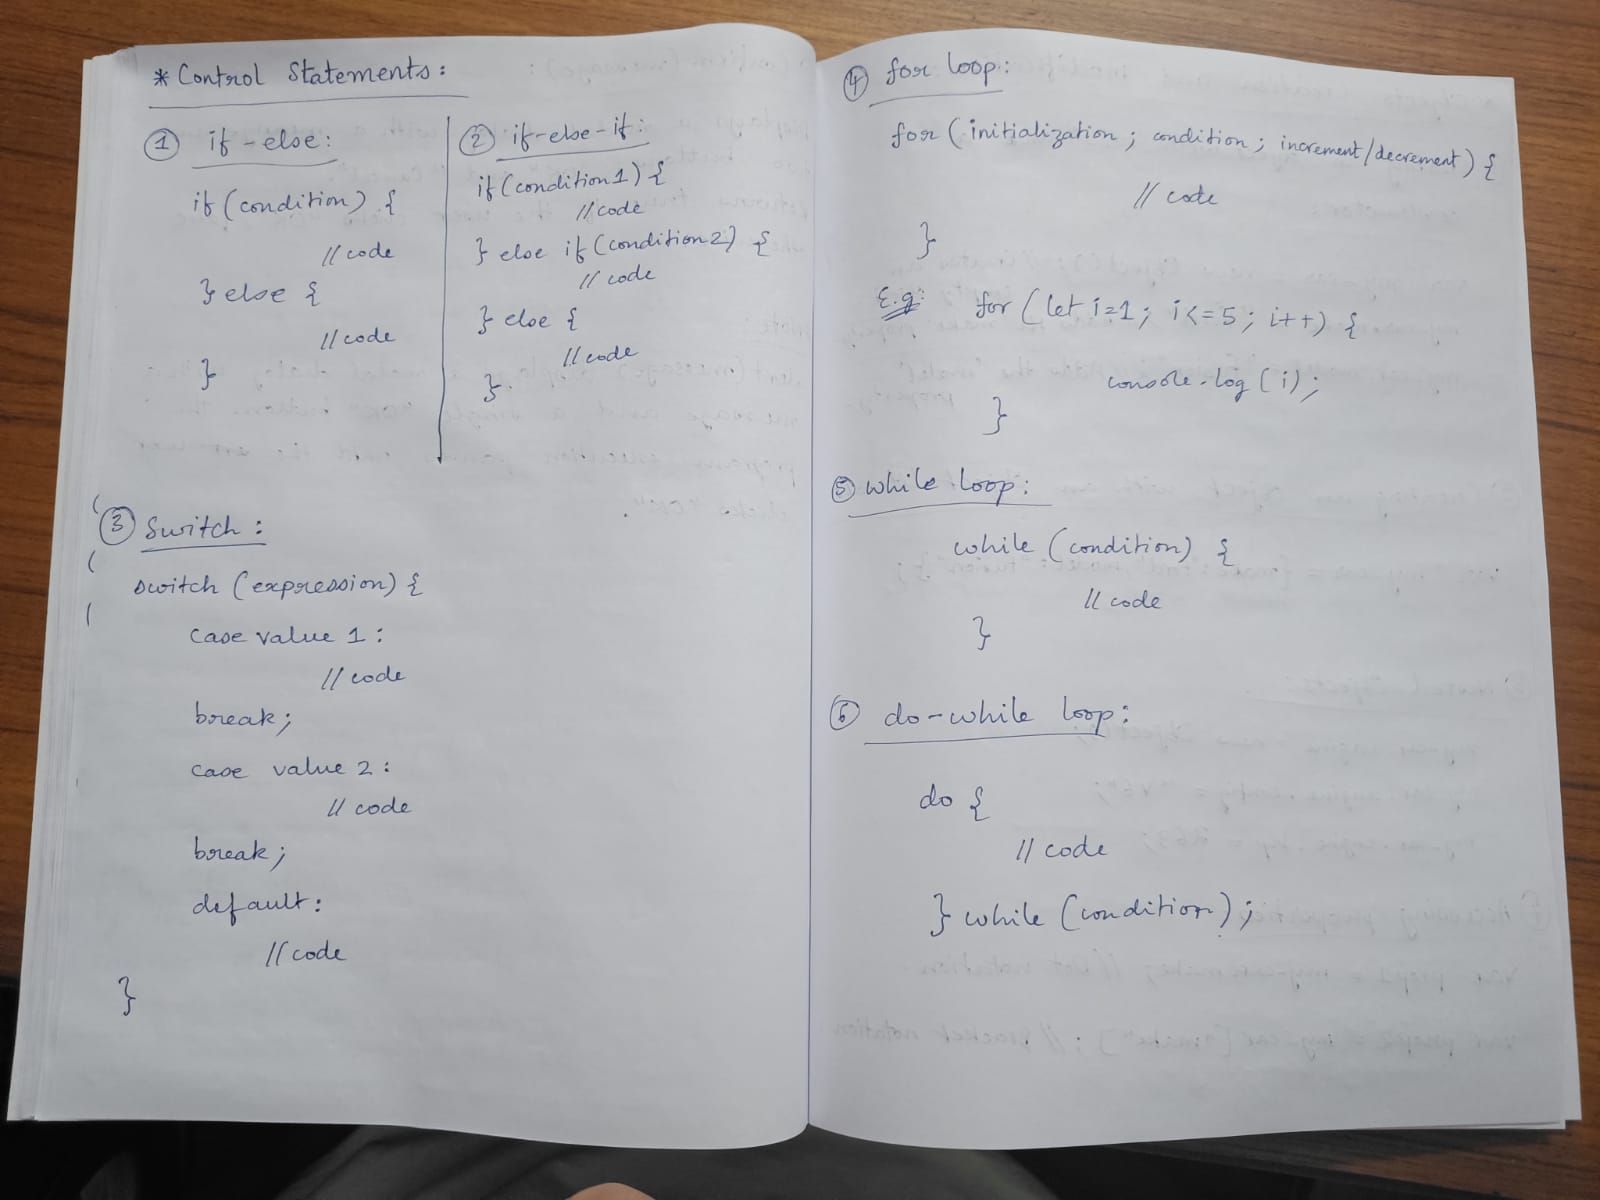 * Control Statements:
① if-else:
if (condition) {
// code
} else {
// code
}
② if-else-if:
if (condition1) {
// code
} else if (condition2) {
// code
} else {
// code
}.
③ Switch:
switch (expression) {
case value 1:
// code
break;
case value 2:
// code
break;
default:
// code
}
④ for loop:
for (initialization; condition; increment/decrement) {
// code
}
E.g: for (let i=1; i<=5; i++) {
console.log(i);
}
⑤ while loop:
while (condition) {
// code
}
⑥ do-while loop:
do {
// code
} while (condition);